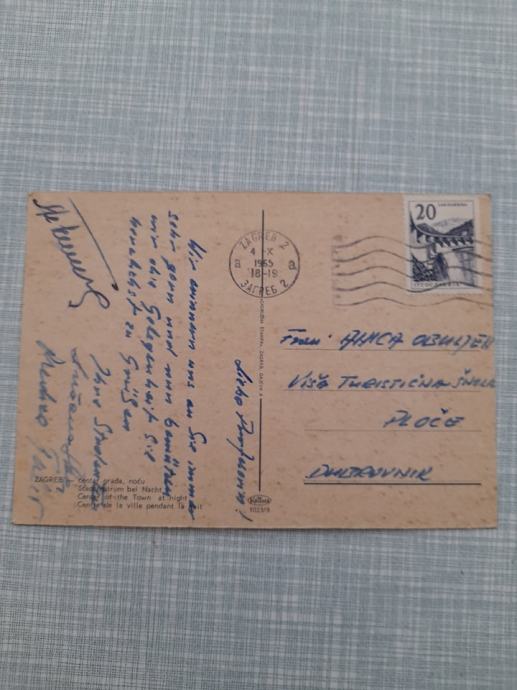 Liebe Professorin!
Wir erinnern uns an Sie immer
sehr gern und nun benützen
wir die Gelegenheit Sie
herzlichst zu Grüßen
Ihre Studenten
ZAGREB 2
4-X
1965
18-19
ЗАГРЕБ 2
a a
20
Frau
Viša Turistična Škola
PLOČE
DUBROVNIK
ZAGREB centar grada, noću
Stadtzentrum bei Nacht
Center of the Town at night
Centre de la ville pendant la nuit
1023/9